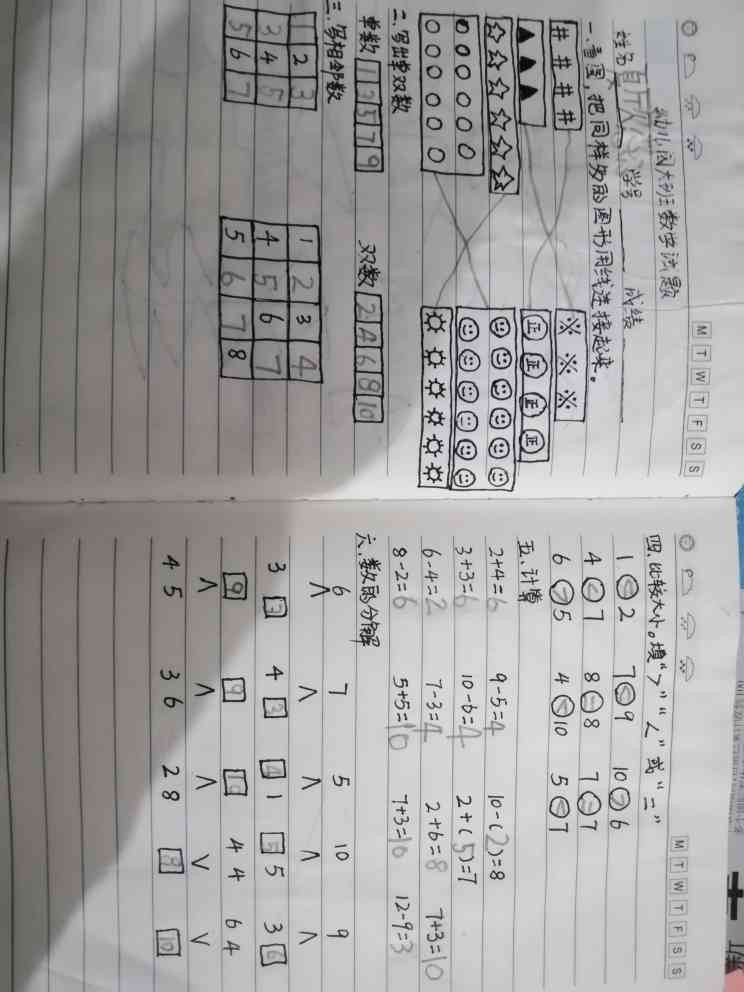 M T W T F S S
幼儿园大班数学试题
姓名 学号 成绩
一.看图,把同样多的图形用线连接起来。
# # # # ※ ※ ※
正 正 正 正
二.写出单双数
单数 1 3 5 7 9 双数 2 4 6 8 10
三.写相邻数
1 2 3 1 2 3 4
3 4 5 4 5 6 7
5 6 7 5 6 7 8
M T W T F S S
四.比较大小。填“>”“<”或“=”
1<2 7<9 10>6
4<7 8=8 7=7
6>5 4<10 5<7
五.计算
2+4=6 9-5=4 10-(2)=8
3+3=6 10-6=4 2+(5)=7
6-4=2 7-3=4 2+6=8 7+3=10
8-2=6 5+5=10 7+3=10 12-9=3
六.数的分解
6 7 5 10 9
∧ ∧ ∧ ∧ ∧
3 3 4 3 4 1 5 5 3 6
9 9 10 4 4 6 4
∧ ∧ ∧ ∨ ∨
4 5 3 6 2 8 8 10